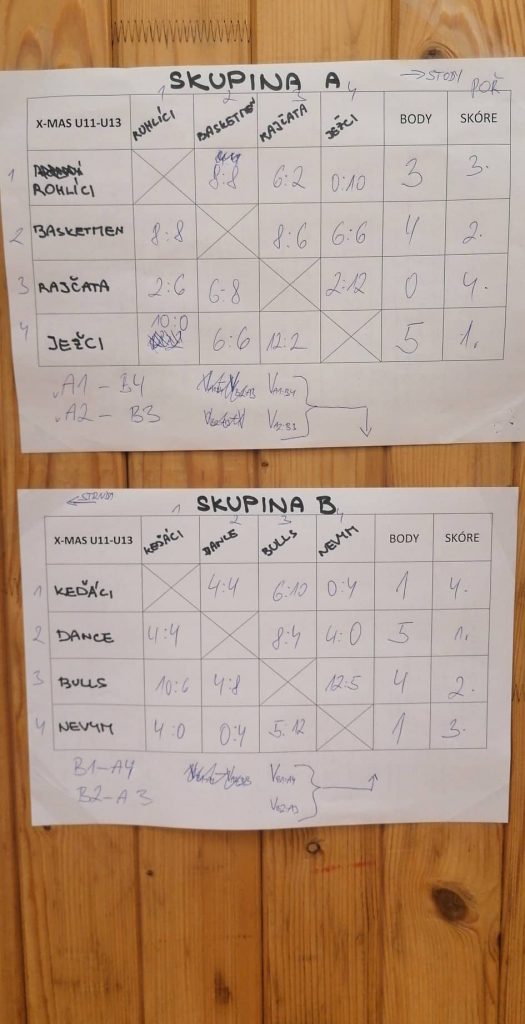 SKUPINA A → STUDY
1 2 3 4 POŘ
X-MAS U11-U13 ROHLÍCI BASKETMEN RAJČATA JEŽCI BODY SKÓRE
1 ROHLÍCI 8:8 6:2 0:10 3 3.
2 BASKETMEN 8:8 8:6 6:6 4 2.
3 RAJČATA 2:6 6-8 2:12 0 4.
4 JEŽCI 10:0 6:6 12:2 5 1.
A1 - B4 VA1:B4
A2 - B3 VA2:B3
SKUPINA B
1 2 3 4
X-MAS U11-U13 KEĎÁCI DANCE BULLS NEVYM BODY SKÓRE
1 KEĎÁCI 4:4 6:10 0:4 1 4.
2 DANCE 4:4 8:4 4:0 5 1.
3 BULLS 10:6 4:8 12:5 4 2.
4 NEVYM 4:0 0:4 5:12 1 3.
B1-A4 VB1:A4
B2-A3 VB2:A3